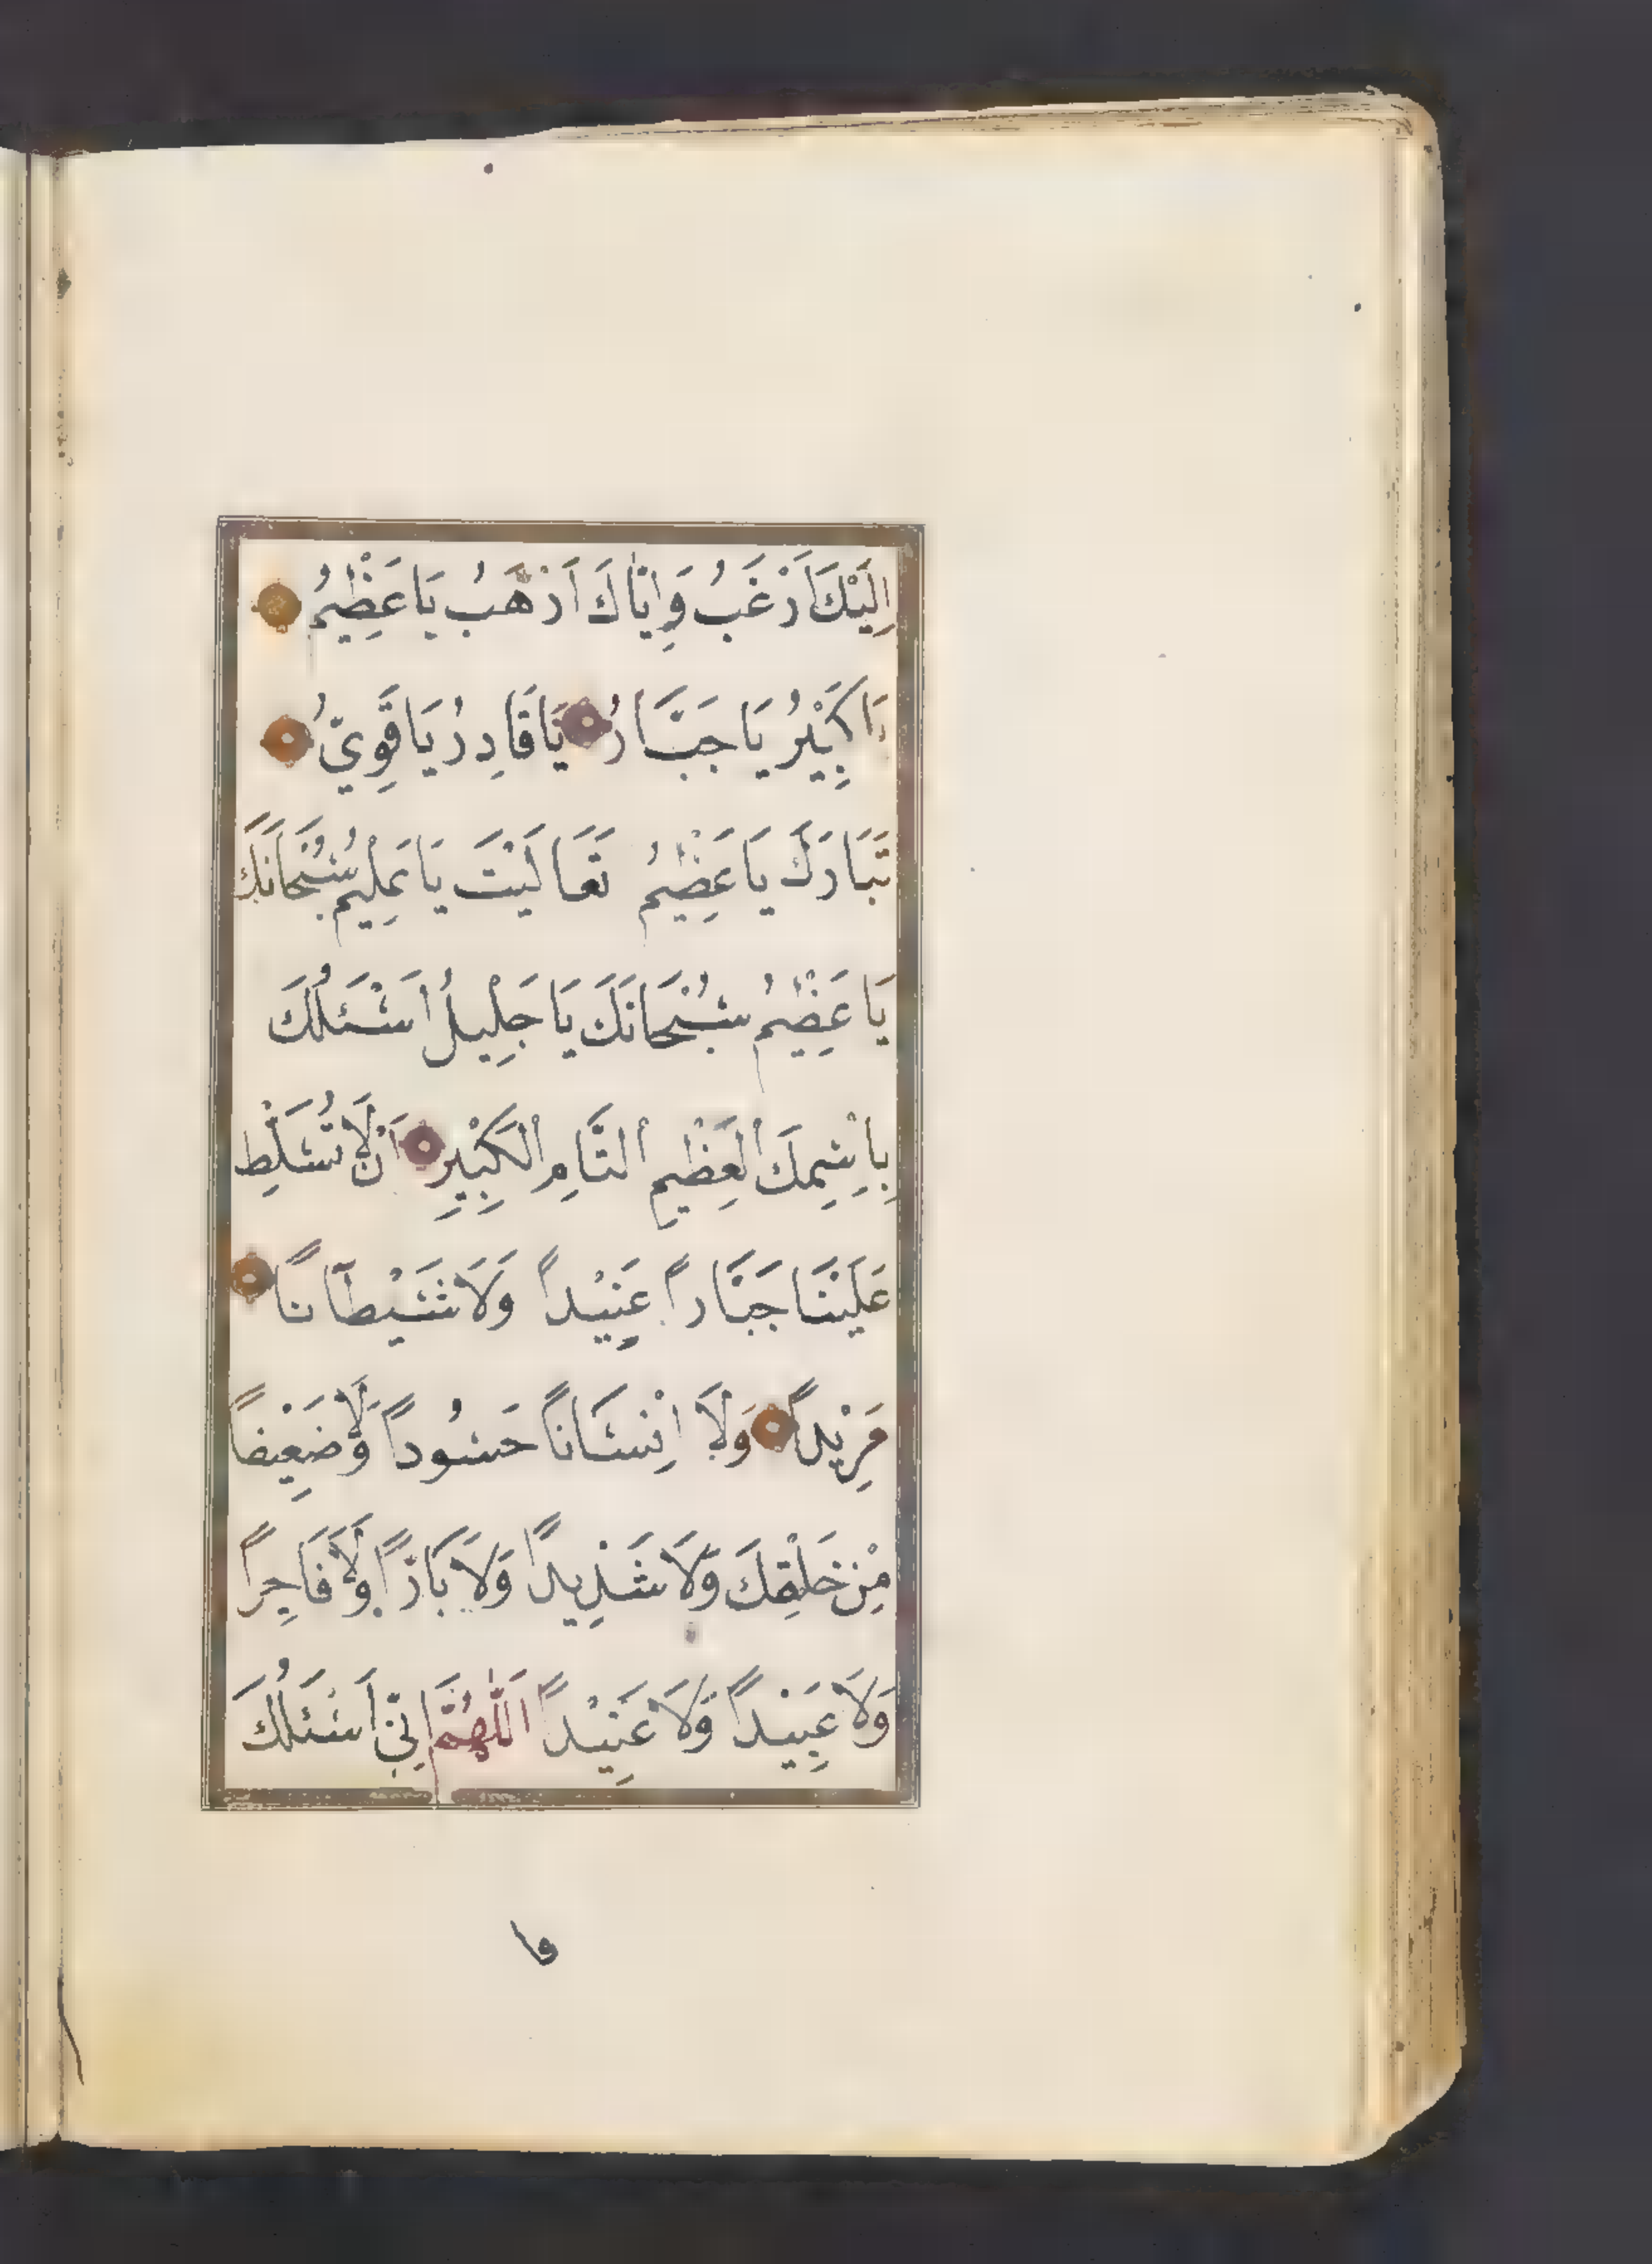 اِلَيْكَ اَرْغَبُ وَاِيَّاكَ اَرْهَبُ يَا عَظِيْمُ
يَا كَبِيْرُ يَا جَبَّارُ يَا قَادِرُ يَا قَوِيُّ
تَبَارَكْتَ يَا عَظِيْمُ تَعَالَيْتَ يَا عَلِيْمُ سُبْحَانَكَ
يَا عَظِيْمُ سُبْحَانَكَ يَا جَلِيْلُ اَسْئَلُكَ
بِاِسْمِكَ الْعَظِيْمِ التَّامِ الْكَبِيْرِ اَنْ لَا تُسَلِّطْ
عَلَيْنَا جَبَّاراً عَنِيْداً وَلَا شَيْطَاناً
مَرِيْداً وَلَا اِنْسَاناً حَسُوداً وَلَا ضَعِيْفاً
مِنْ خَلْقِكَ وَلَا شَدِيداً وَلَا بَارّاً وَلَا فَاجِراً
وَلَا عَبِيْداً وَلَا عَنِيْداً اَللّٰهُمَّ اِنِّي اَسْئَلُكَ